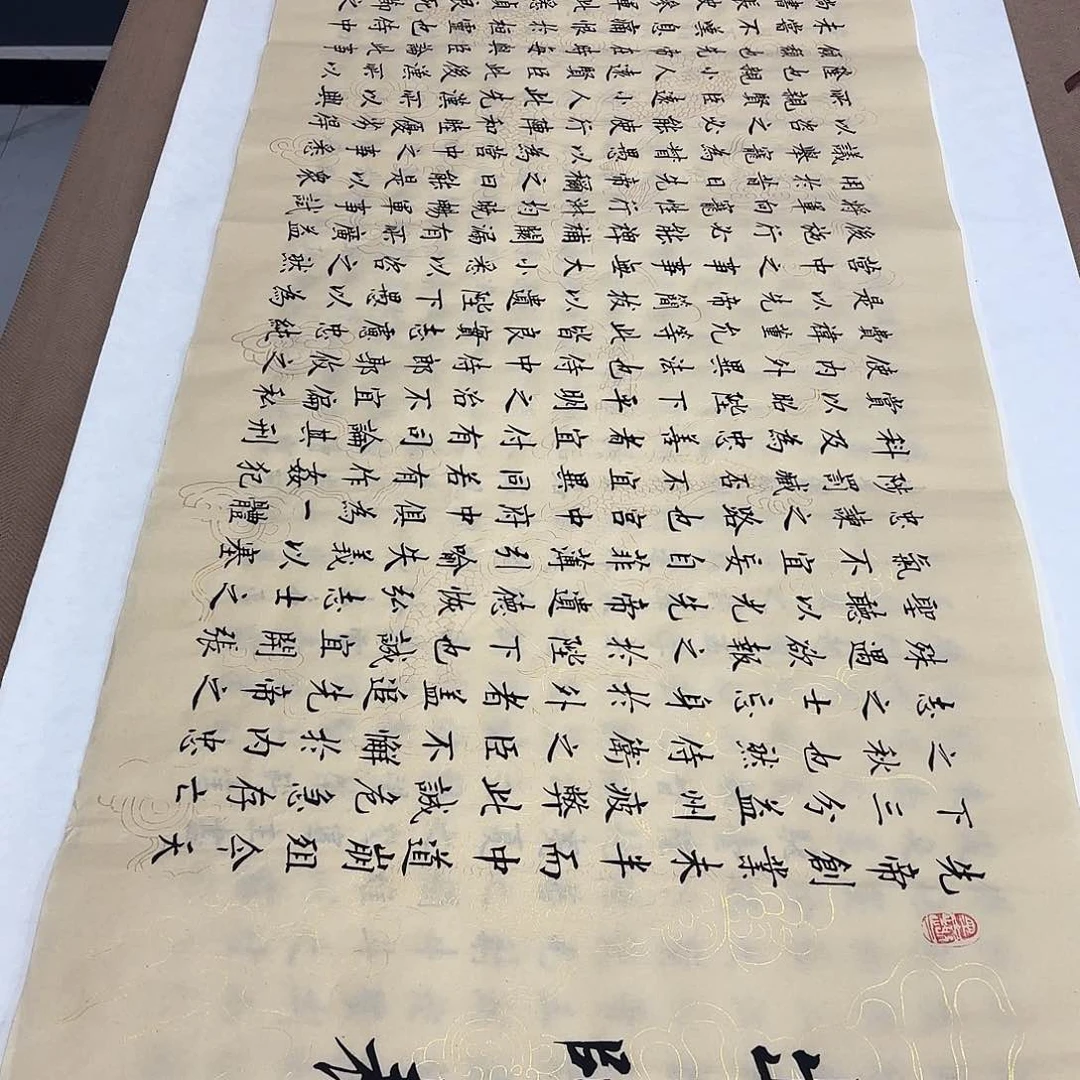 先帝創業未半而中道崩殂今天
下三分益州疲弊此誠危急存亡
之秋也然侍衛之臣不懈於內忠
志之士忘身於外者蓋追先帝之
殊遇欲報之於陛下也誠宜開張
聖聽以光先帝遺德恢弘志士之
氣不宜妄自菲薄引喻失義以塞
忠諫之路也宮中府中俱為一體
陟罰臧否不宜異同若有作姦犯
科及為忠善者宜付有司論其刑
賞以昭陛下平明之治不宜偏私
使內外異法也侍中侍郎郭攸之
費禕董允等此皆良實志慮忠純
是以先帝簡拔以遺陛下愚以為
營中之事事無大小悉以咨之然
後施行必能裨補闕漏有所廣益
將軍向寵性行淑均曉暢軍事試
用於昔日先帝稱之曰能是以眾
議舉寵為督愚以為營中之事悉
以咨之必能使行陣和睦優劣得
所親賢臣遠小人此先漢所以興
隆也親小人遠賢臣此後漢所以
傾頹也先帝在時每與臣論此事
未嘗不歎息痛恨於桓靈也侍中